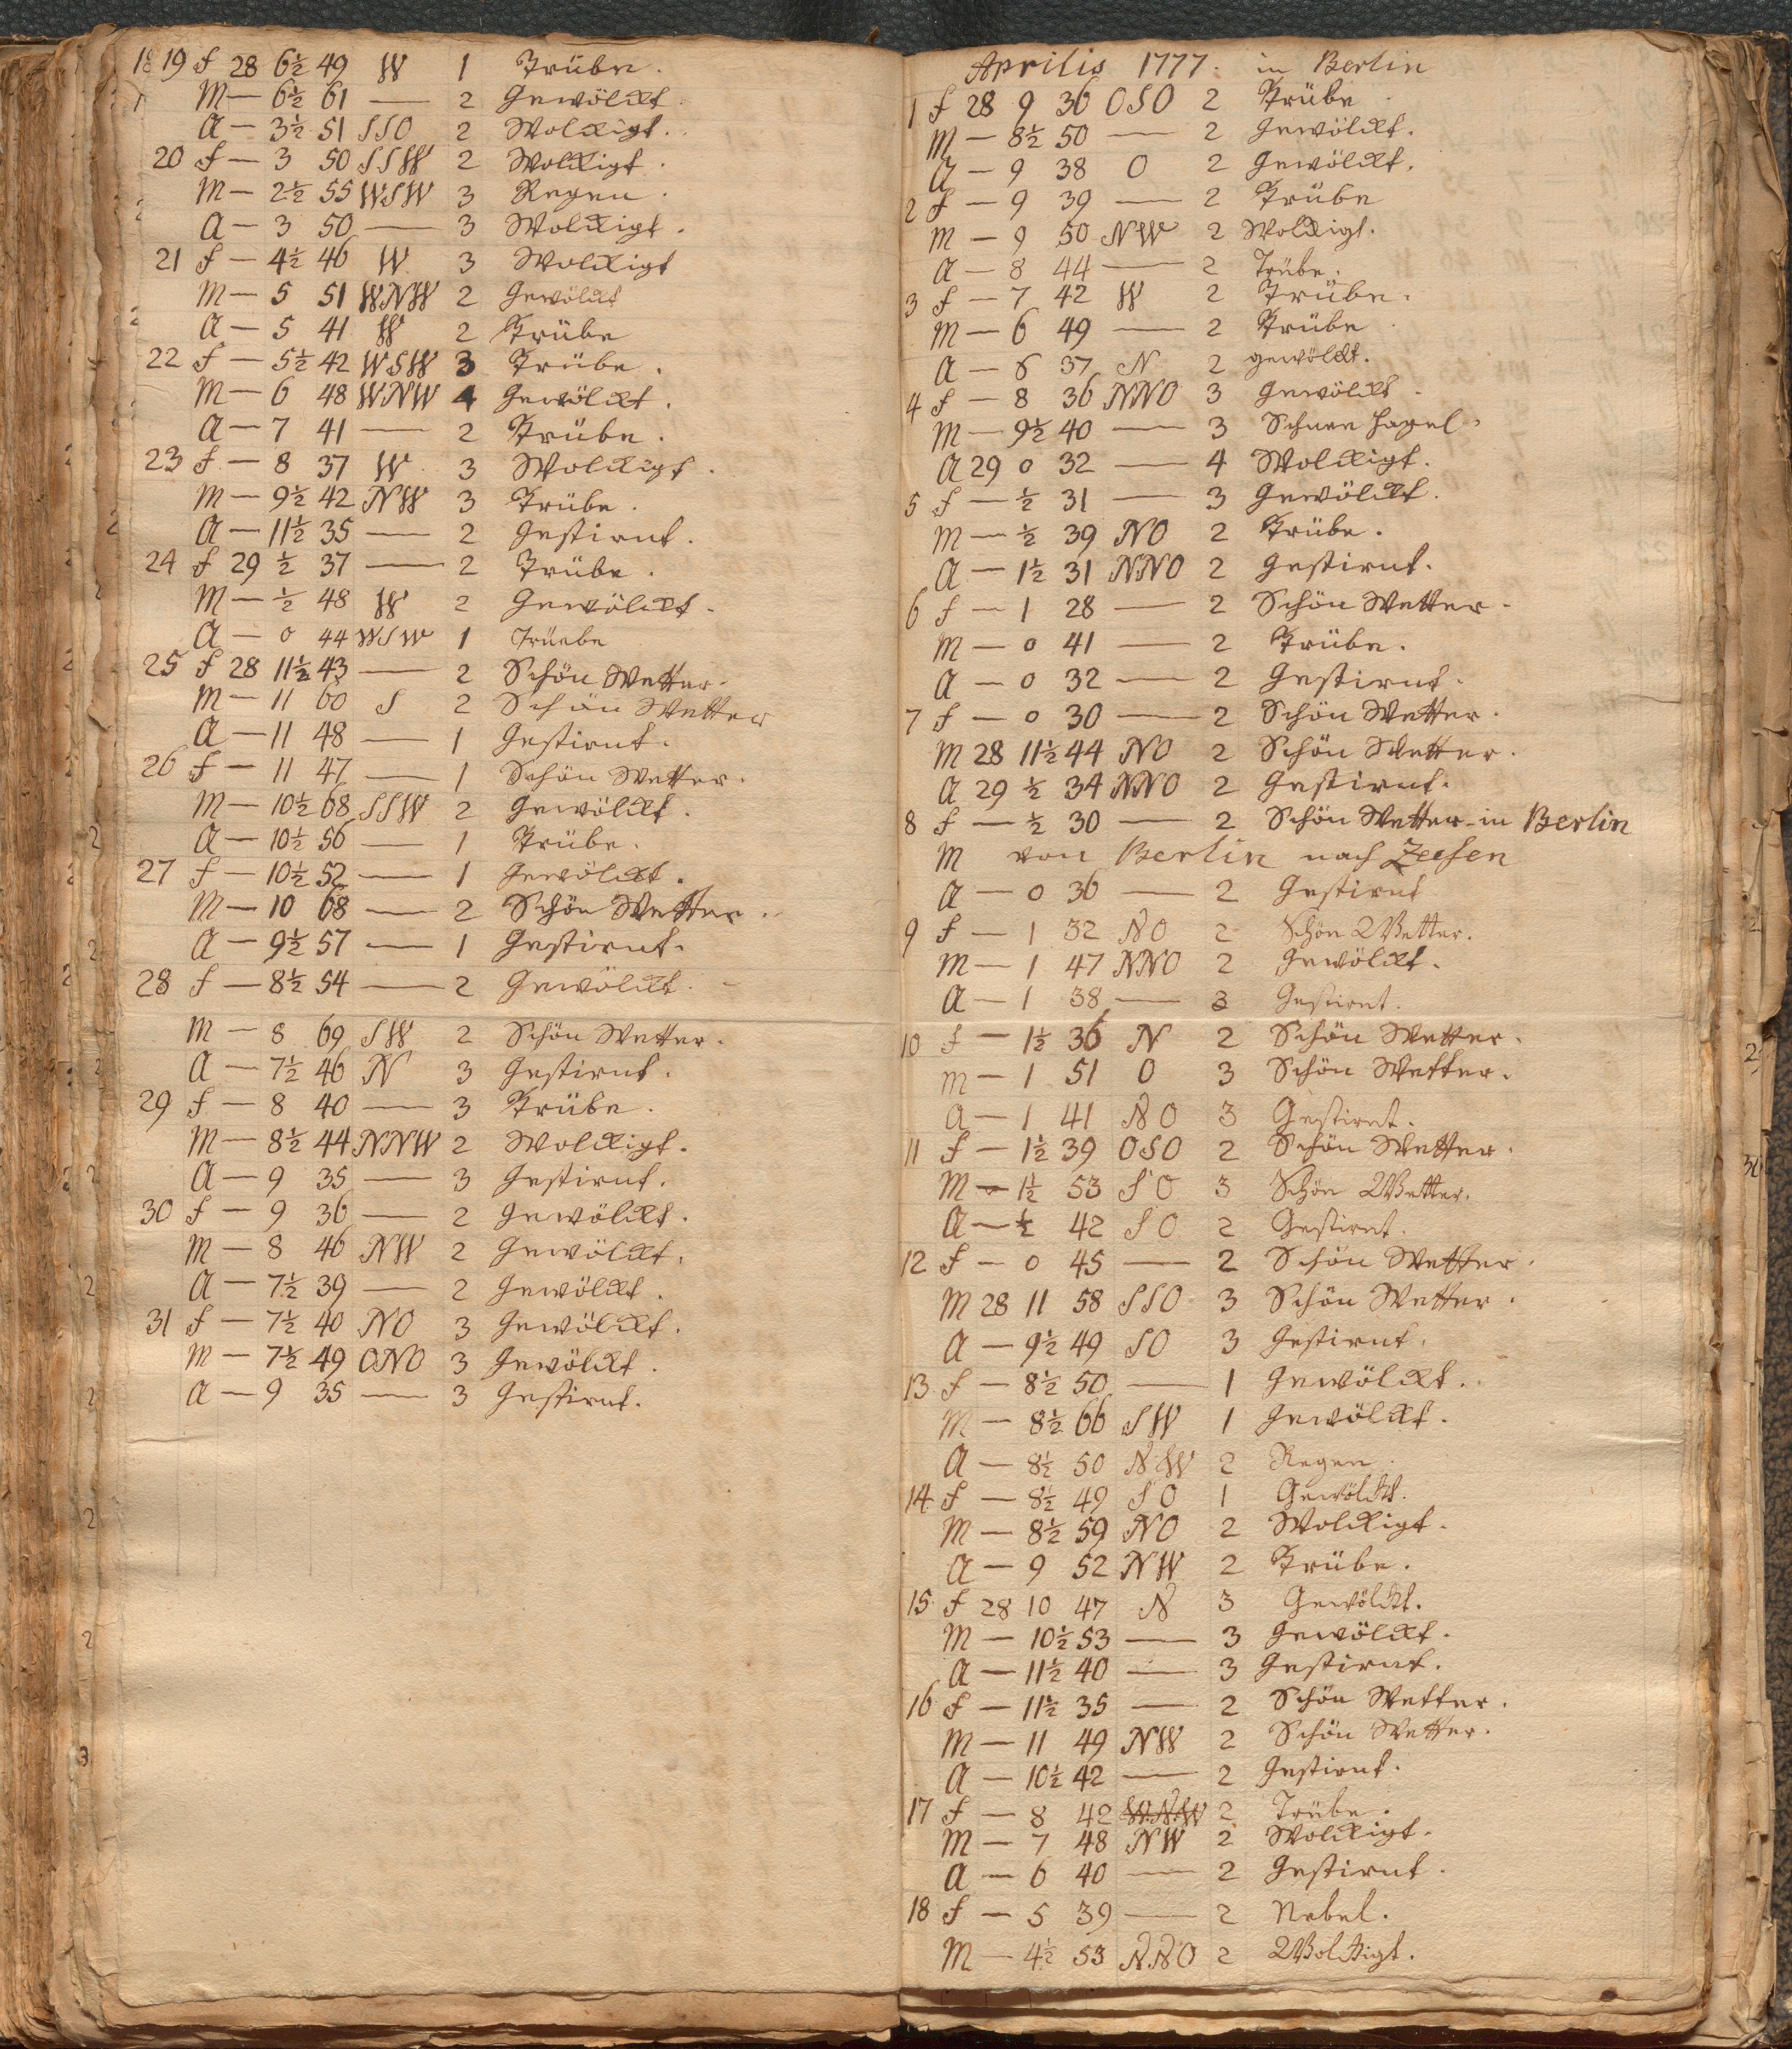 19 f 28 6½ 49 W 1 Trübe.
M — 6½ 61 — 2 Gewölckt.
A — 3½ 51 SSO 2 Wolckigt.
20 f — 3 50 SSW 2 Wolckigt.
M — 2½ 55 WSW 3 Regen.
A — 3 50 — 3 Wolckigt.
21 f — 4½ 46 W 3 Wolckigt
M — 5 51 WNW 2 Gewölckt
A — 5 41 W 2 Trübe
22 f — 5½ 42 WSW 3 Trübe.
M — 6 48 WNW 4 Gewölckt.
A — 7 41 — 2 Trübe.
23 f — 8 37 W 3 Wolckigt.
M — 9½ 42 NW 3 Trübe.
A — 11½ 35 — 2 Gestirnt.
24 f 29 ½ 37 — 2 Trübe.
M — ½ 48 W 2 Gewölckt.
A — 0 44 WSW 1 Trüebe
25 f 28 11½ 43 — 2 Schön Wetter.
M — 11 60 S 2 Schön Wetter
A — 11 48 — 1 Gestirnt.
26 f — 11 47 — 1 Schön Wetter.
M — 10½ 68 SSW 2 Gewölckt.
A — 10½ 56 — 1 Trübe.
27 f — 10½ 52 — 1 Gewölckt.
M — 10 68 — 2 Schön Wetter.
A — 9½ 57 — 1 Gestirnt.
28 f — 8½ 54 — 2 Gewölckt.
M — 8 69 SW 2 Schön Wetter.
A — 7½ 46 N 3 Gestirnt.
29 f — 8 40 — 3 Trübe.
M — 8½ 44 NNW 2 Wolckigt.
A — 9 35 — 3 Gestirnt.
30 f — 9 36 — 2 Gewölckt.
M — 8 46 NW 2 Gewölckt.
A — 7½ 39 — 2 Gewölckt.
31 f — 7½ 40 NO 3 Gewölckt.
M — 7½ 49 ONO 3 Gewölckt.
A — 9 35 — 3 Gestirnt.
Aprilis 1777. in Berlin
1 f 28 9 36 OSO 2 Trübe
M — 8½ 50 — 2 Gewölckt.
A — 9 38 O 2 Gewölckt.
2 f — 9 39 — 2 Trübe
M — 9 50 NW 2 Wolckigt.
A — 8 44 — 2 Trübe.
3 f — 7 42 W 2 Trübe.
M — 6 49 — 2 Trübe
A — 37 N 2 gewölckt.
4 f — 8 36 NNO 3 Gewölckt
M — 9½ 40 — 3 Schnee Hagel.
A 29 0 32 — 4 Wolckigt.
5 f — ½ 31 — 3 Gewölckt.
M — ½ 39 NO 2 Trübe.
A — 1½ 31 NNO 2 Gestirnt.
6 f — 1 28 — 2 Schön Wetter.
M — 0 41 — 2 Trübe.
A — 0 32 — 2 Gestirnt.
7 f — 0 30 — 2 Schön Wetter.
M 28 11½ 44 NO 2 Schön Wetter.
A 29 ½ 34 NNO 2 Gestirnt.
8 f — ½ 30 — 2 Schön Wetter in Berlin
M von Berlin nach Zeesen
A — 0 36 — 2 Gestirnt
9 f — 1 32 NO 2 Schön Wetter.
M — 1 47 NNO 2 Gewölckt.
A — 1 38 — 3 Gestirnt.
10 f — 1½ 36 N 2 Schön Wetter.
M — 1 51 O 3 Schön Wetter.
A — 1 41 NO 3 Gestirnt.
11 f — 1½ 39 OSO 2 Schön Wetter.
M — 1½ 53 SO 3 Schön Wetter.
A — ½ 42 SO 2 Gestirnt.
12 f — 0 45 — 2 Schön Wetter.
M 28 11 58 SSO 3 Schön Wetter.
A — 9½ 49 SO 3 Gestirnt.
13 f — 8½ 50 — 1 Gewölckt.
M — 8½ 66 SW 1 Gewölckt.
A — 8½ 50 NW 2 Regen.
14 f — 8½ 49 SO 1 Gewölckt.
M — 8½ 59 NO 2 Wolckigt.
A — 9 52 NW 2 Trübe.
15 f 28 10 47 N 3 Gewölckt.
M — 10½ 53 — 3 Gewölckt.
A — 11½ 40 — 3 Gestirnt.
16 f — 11½ 35 — 2 Schön Wetter.
M — 11 49 NW 2 Schön Wetter.
A — 10½ 42 — 2 Gestirnt.
17 f — 8 42 WNW 2 Trübe.
M — 7 48 NW 2 Wolckigt.
A — 6 40 — 2 Gestirnt.
18 f — 5 39 — 2 Nebel.
M — 4½ 53 NNO 2 Wolckigt.